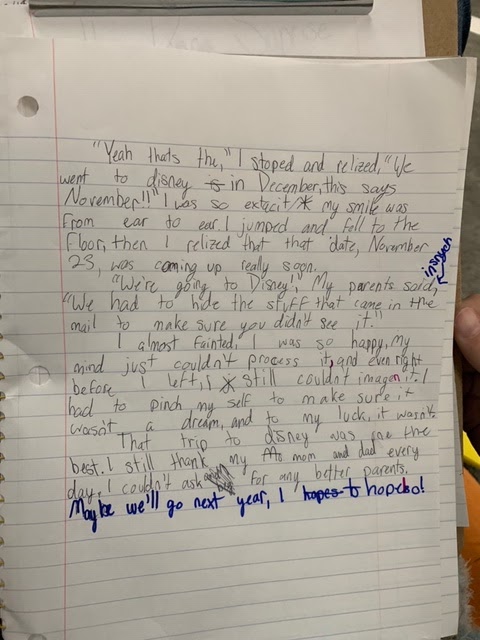 "Yeah thats the," I stoped and relized, "We
went to disney is in December, this says
November!!" I was so extecit, my smile was
from ear to ear. I jumped and fell to the
floor, then I relized that that date, November
23, was coming up really soon.
"We're going to Disney", My parents said,
"We had to hide the stuff that came in the
mail to make sure you didn't see it."
I almost fainted, I was so happy, my
mind just couldn't process it, and even right
before I left, I still couldn't imagen it. I
had to pinch my self to make sure it
wasn't a dream, and to my luck, it wasn't.
That trip to disney was the
best. I still thank my mom and dad every
day. I couldn't ask for any better parents.
Maybe we'll go next year, I hopes to hope so!